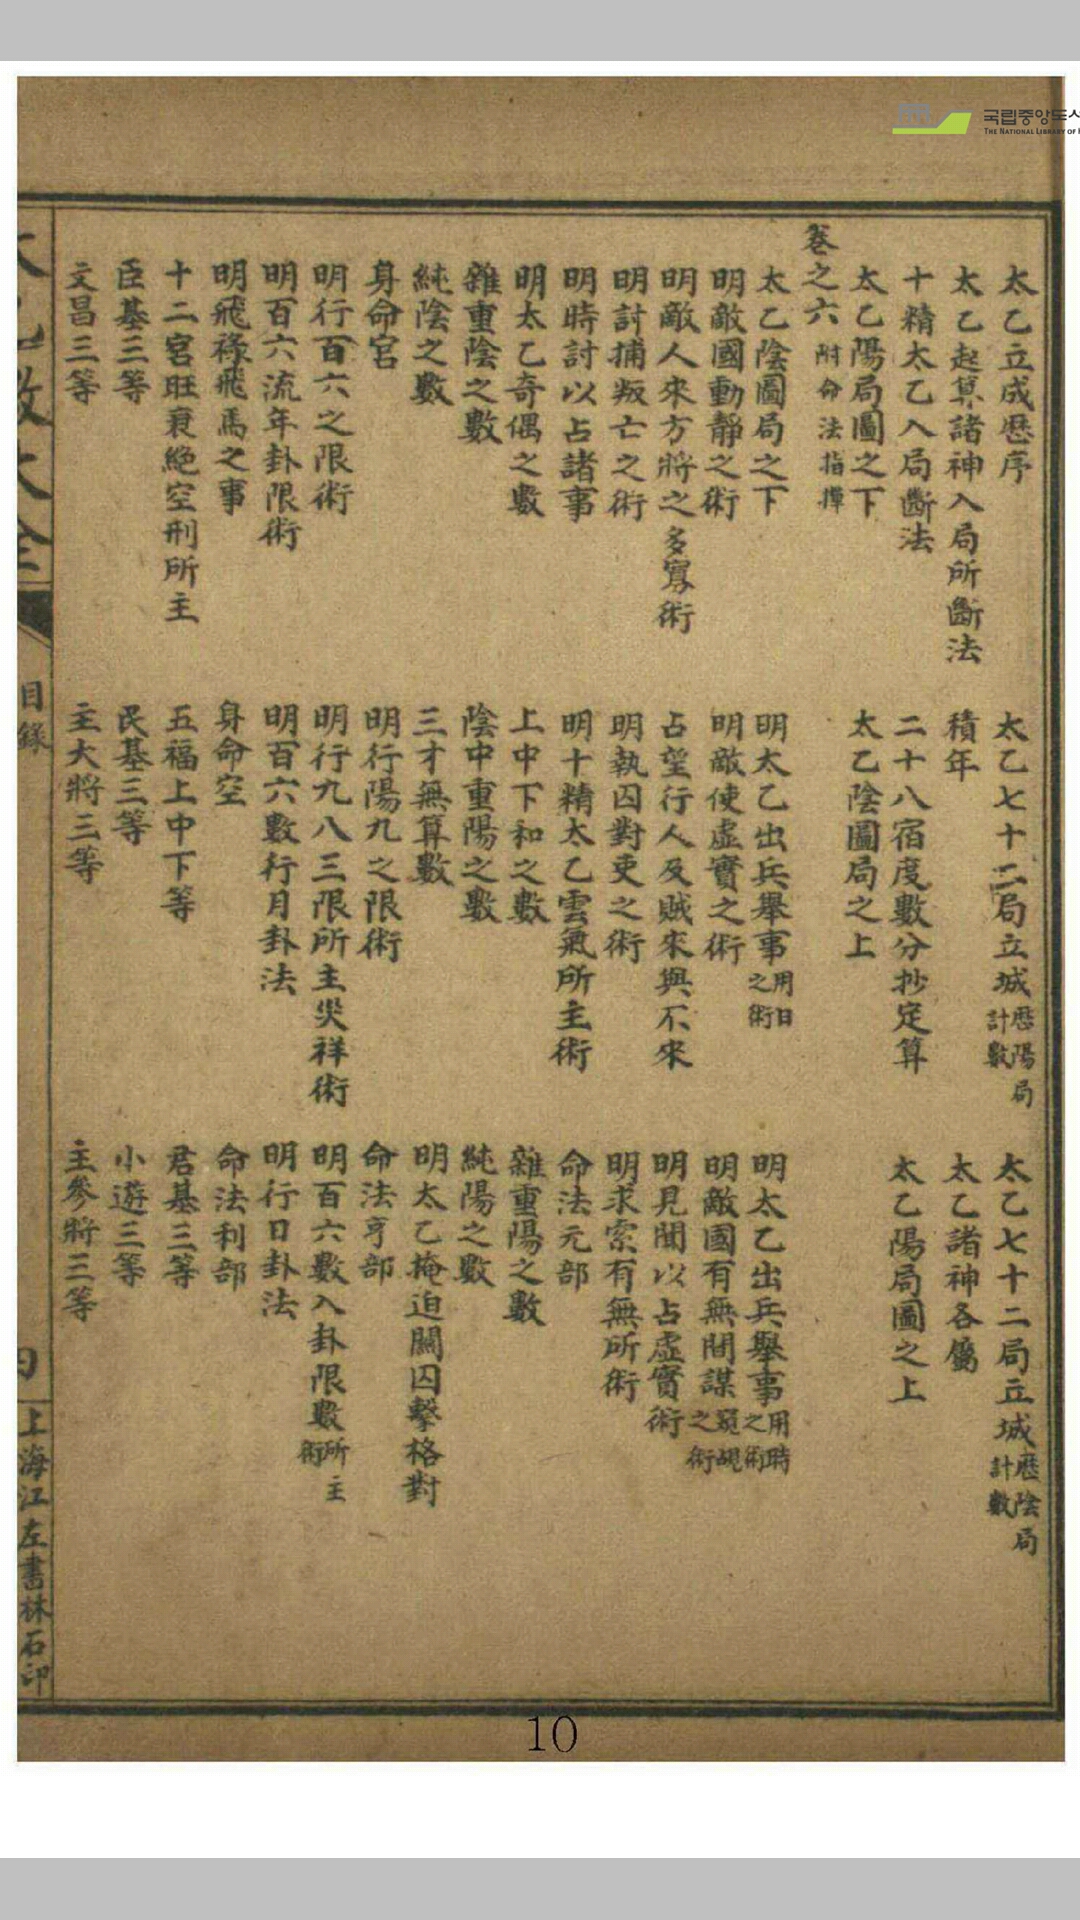 국립중앙도서
THE NATIONAL LIBRARY OF K
太乙立成歷序 太乙七十二局立城歷陽局計數 太乙七十二局立城歷陰局計數
太乙起算諸神入局所斷法 積年 太乙諸神各屬
十精太乙入局斷法 二十八宿度數分抄定算 太乙陽局圖之上
太乙陽局圖之下 太乙陰圖局之上
卷之六 附命法指
太乙陰圖局之下 明太乙出兵舉事用日之術 明太乙出兵舉事用時之術
明敵國動靜之術 明敵使虛實之術 明敵國有無間諜窺覘之術
明敵人來方將之多寡術 占望行人及賊來與不來 明見聞以占虛實術
明討捕叛亡之術 明執囚對吏之術 明求索有無所術
明時討以占諸事 明十精太乙雲氣所主術 命法元部
明太乙奇偶之數 上中下和之數 雜重陽之數
雜重陰之數 陰中重陽之數 純陽之數
純陰之數 三才無算數 明太乙掩迫關囚擊格對
身命宮 明行陽九之限術 命法亨部
明行百六之限術 明行九八三限所主災祥術 明百六數入卦限數所主術
明百六流年卦限術 明百六數行月卦法 明行日卦法
明飛祿飛馬之事 身命空 命法利部
十二宮旺衰絕空刑所主 五福上中下等 君基三等
臣基三等 民基三等 小遊三等
文昌三等 主大將三等 主參將三等
太乙數大全
目錄
上海江左書林石印
10